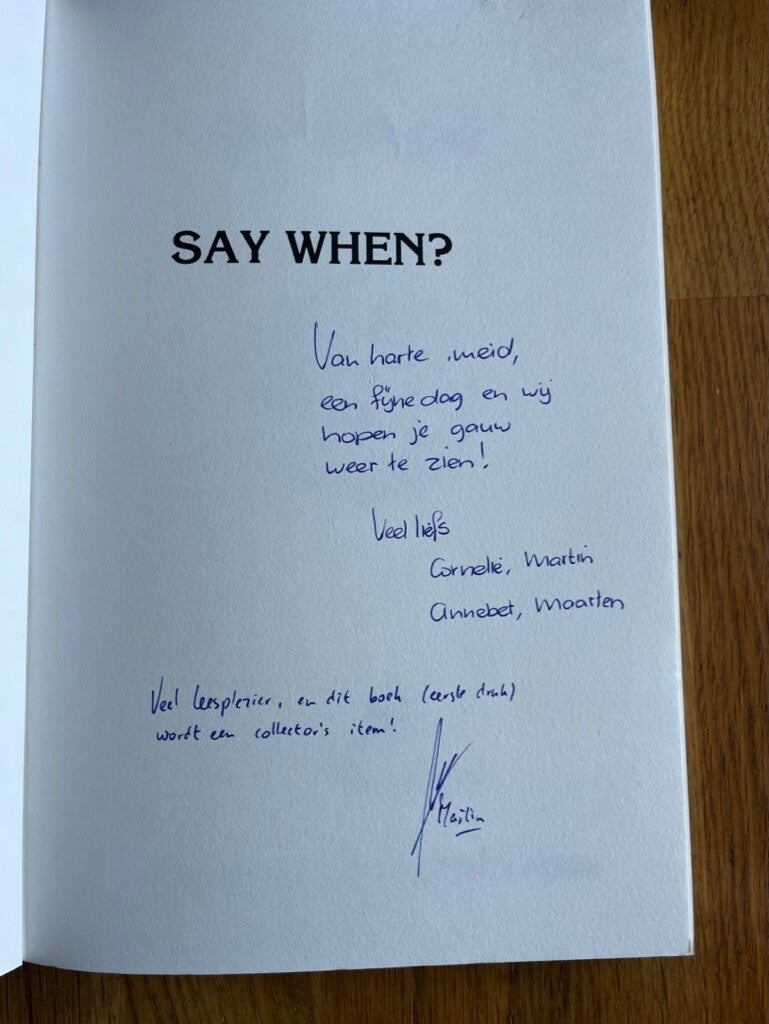 SAY WHEN?
Van harte meid,
een fijne dag en wij
hopen je gauw
weer te zien!
Veel liefs
Cornelie, Martin
Annebet, Maarten
Veel leesplezier, en dit boek (eerste druk)
wordt een collector's item!
Martin